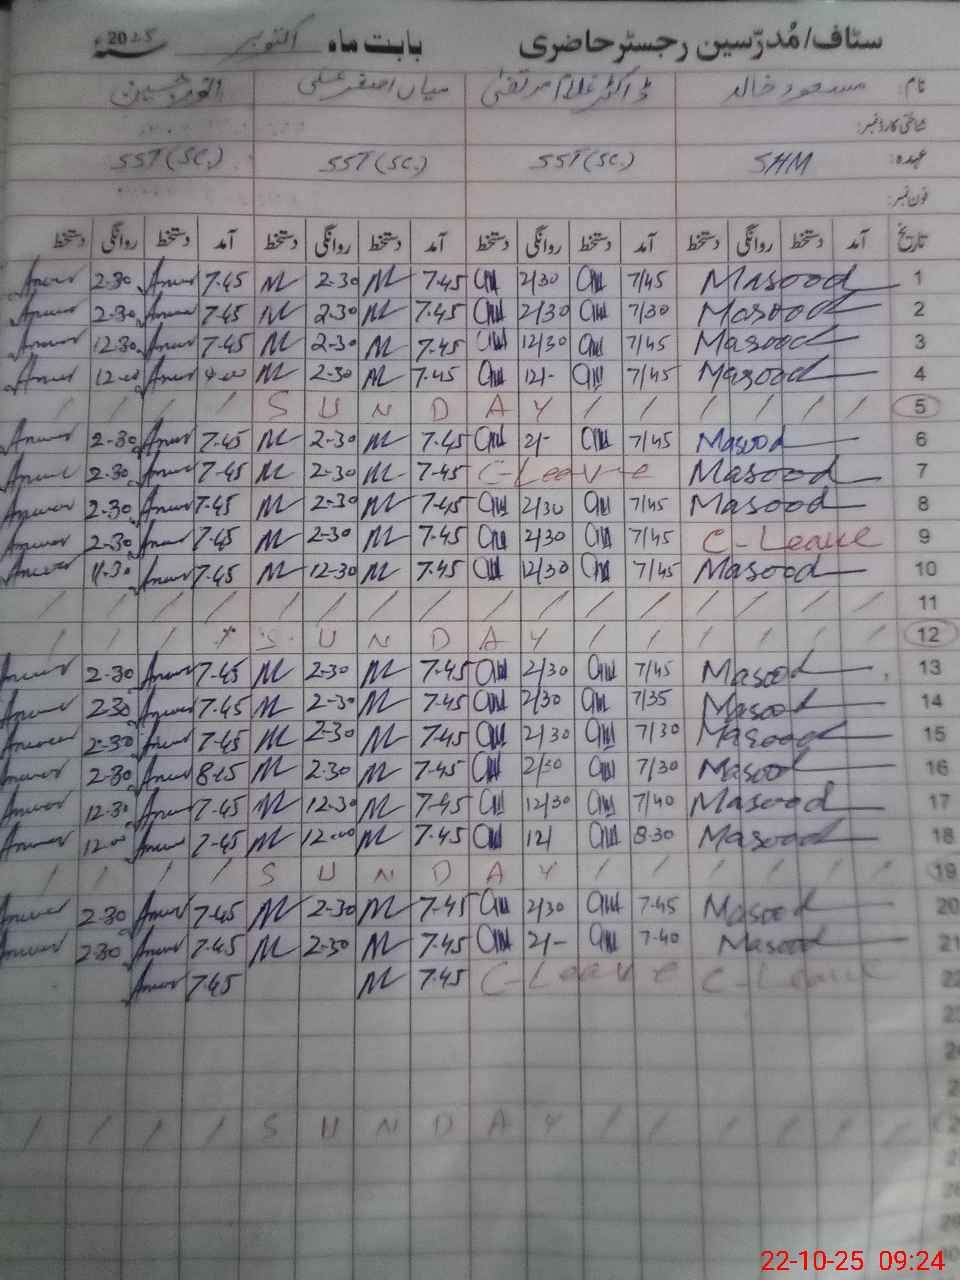 سٹاف/مُدرّسین رجسٹر حاضری بابت ماہ اکتوبر 2025ء
نام: مسعود خالد ڈاکٹر غلام مرتضیٰ میاں اصغر علی انور حسین
شناختی کارڈ نمبر:
عہدہ: SHM SST(SC.) SST(SC.) SST(SC.)
فون نمبر:
تاریخ آمد دستخط روانگی دستخط آمد دستخط روانگی دستخط آمد دستخط روانگی دستخط آمد دستخط روانگی دستخط
Anwer 2-30 Anwer 7-45 M 2-30 M 7-45 2/30 7/45 Masood 1
Anwer 2-30 Anwer 7-45 M 2-30 M 7-45 2/30 7/30 Masood 2
Anwer 12-30 Anwer 7-45 M 2-30 M 7-45 12/30 7/45 Masood 3
Anwer 12-00 Anwer M 2-30 M 7-45 12/- 7/45 Masood 4
/ / / / S U N D A Y / / / / / / 5
Anwer 2-30 Anwer 7-45 M 2-30 M 7-45 2/- 7/45 Masood 6
Anwer 2-30 Anwer 7-45 M 2-30 M 7-45 C-Leave Masood 7
Anwer 2-30 Anwer 7-45 M 2-30 M 7-45 2/30 7/45 Masood 8
Anwer 2-30 Anwer 7-45 M 2-30 M 7-45 2/30 7/45 C-Leave 9
Anwer 11-30 Anwer 7-45 M 12-30 M 7-45 12/30 7/45 Masood 10
/ / / / / / / / / / / / / / / / 11
/ / / / S U N D A Y / / / / / / 12
Anwer 2-30 Anwer 7-45 M 2-30 M 7-45 2/30 7/45 Masood 13
Anwer 2-30 Anwer 7-45 M 2-30 M 7-45 2/30 7/35 Masood 14
Anwer 2-30 Anwer 7-45 M 2-30 M 7-45 2/30 7/30 Masood 15
Anwer 2-30 Anwer 8-15 M 2-30 M 7-45 2/30 7/30 Masood 16
Anwer 12-30 Anwer 7-45 M 12-30 M 7-45 12/30 7/40 Masood 17
Anwer 12-00 Anwer 7-45 M 12-00 M 7-45 12/ 8-30 Masood 18
/ / / / S U N D A Y / / / / / / 19
Anwer 2-30 Anwer 7-45 M 2-30 M 7-45 2/30 7-45 Masood 20
Anwer 2-30 Anwer 7-45 M 2-30 M 7-45 2/- 7-40 Masood 21
Anwer 7-45 M 7-45 C-Leave C-Leave 22
23
/ / / / S U N D A Y / / / / / /
22-10-25 09:24